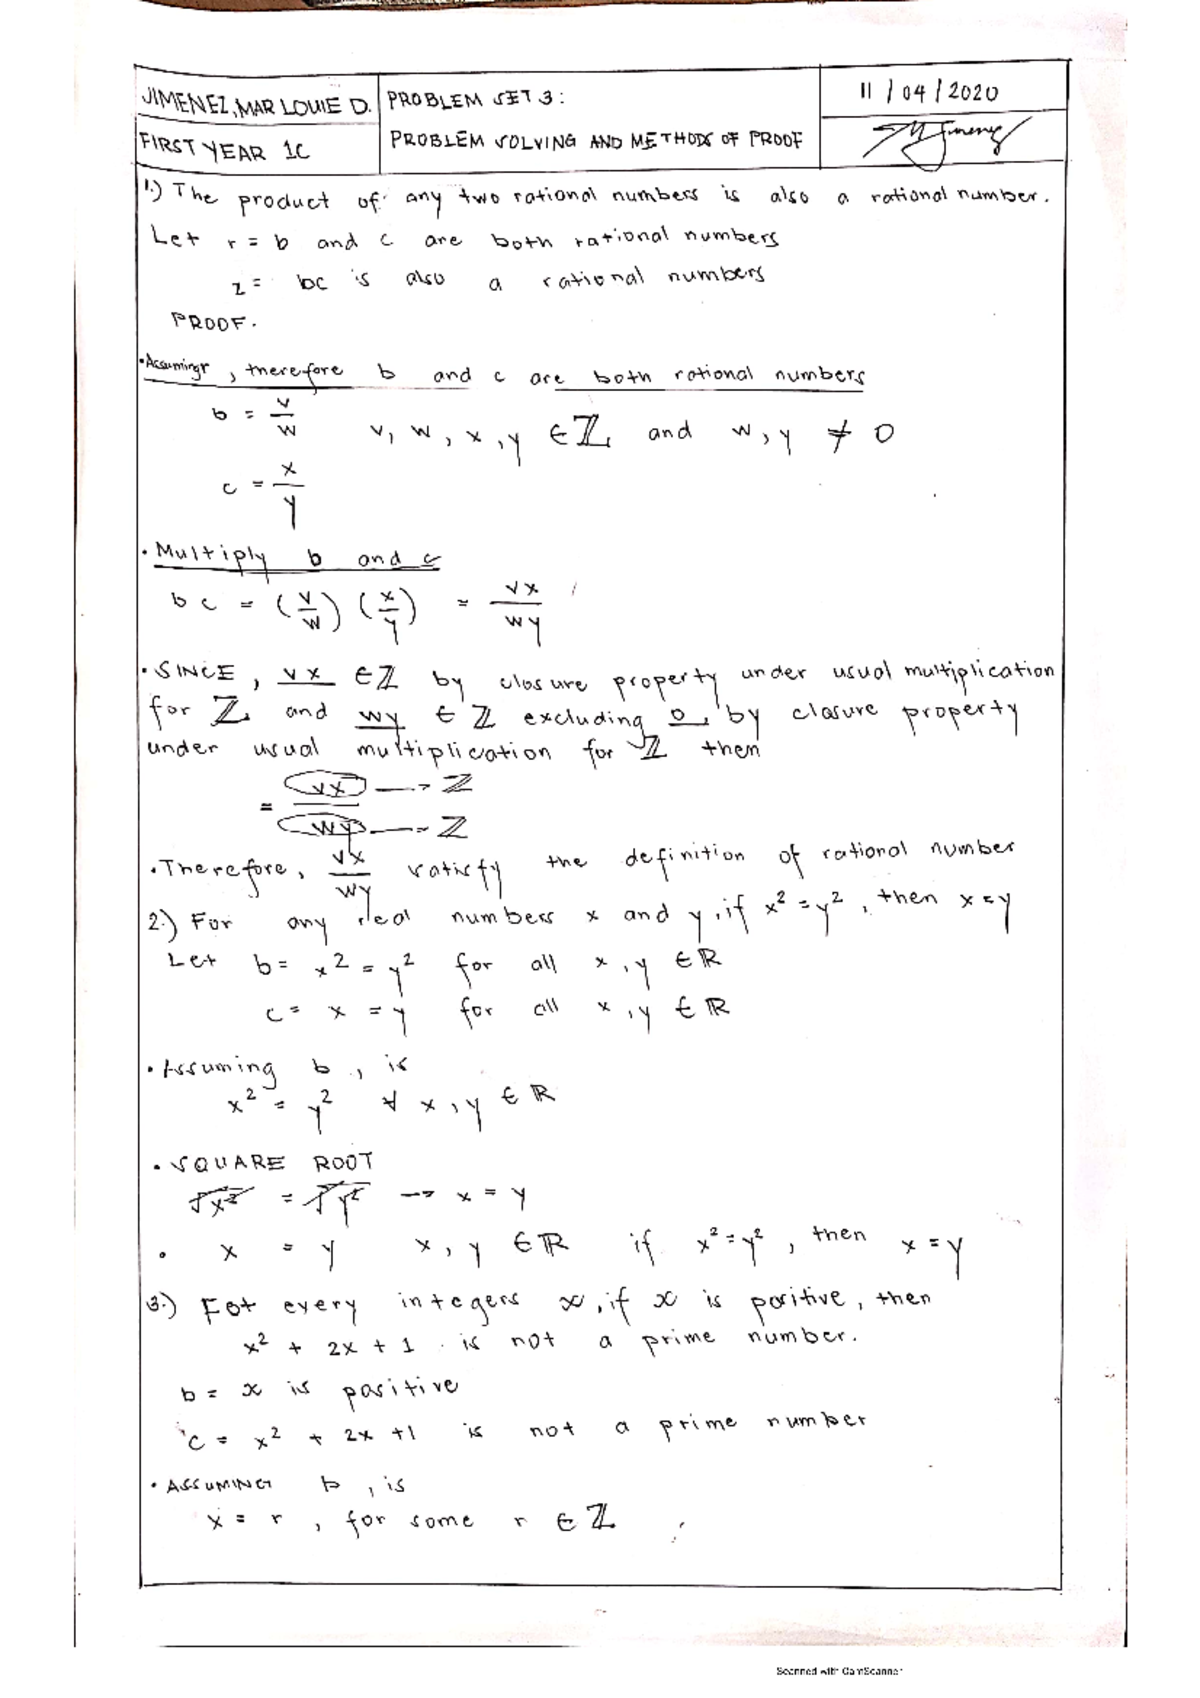 JIMENEZ, MAR LOUIE D.
FIRST YEAR 1C
PROBLEM SET 3:
PROBLEM SOLVING AND METHODS OF PROOF
11/04/2020
1.) The product of any two rational numbers is also a rational number.
Let r = b and c are both rational numbers
z = bc is also a rational numbers
PROOF.
• Assuming r, therefore b and c are both rational numbers
b = v/w
v, w, x, y ∈ ℤ and w, y ≠ 0
c = x/y
• Multiply b and c
bc = (v/w)(x/y) = vx/wy
• SINCE, vx ∈ ℤ by closure property under usual multiplication
for ℤ, and wy ∈ ℤ excluding 0, by closure property
under usual multiplication for ℤ then
= vx → ℤ
wy → ℤ
• Therefore, vx/wy satisfy the definition of rational number
2.) For any real numbers x and y, if x² = y², then x = y
Let b = x² = y² for all x, y ∈ ℝ
c = x = y for all x, y ∈ ℝ
• Assuming b, is
x² = y² ∀ x, y ∈ ℝ
• SQUARE ROOT
√x² = √y² → x = y
• x = y x, y ∈ ℝ if x² = y², then x = y
3.) For every integers x, if x is positive, then
x² + 2x + 1 is not a prime number.
b = x is positive
c = x² + 2x + 1 is not a prime number
• ASSUMING b, is
x = r, for some r ∈ ℤ
Scanned with CamScanner